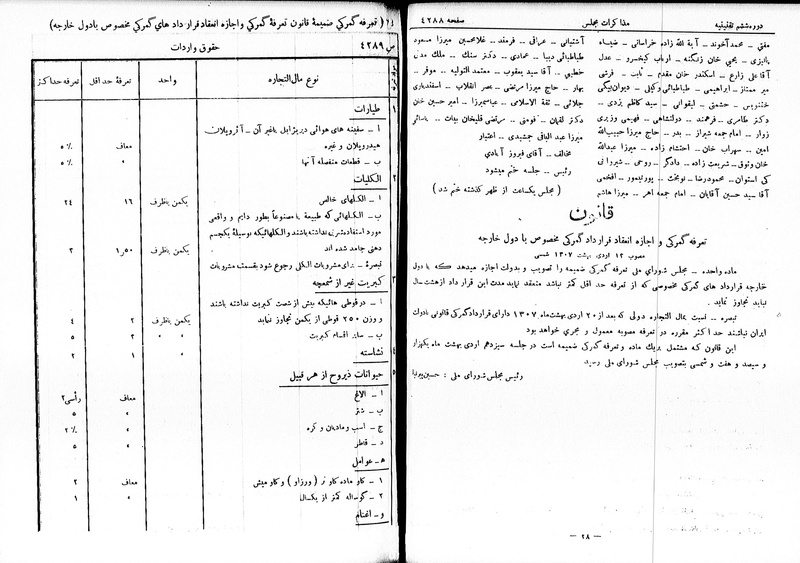 دوره ششم تقنینیه
مذاکرات مجلس
صفحه ۴۲۸۸
مفتی ـ محمد آخوند ـ آیة الله زاده خراسانی ـ ضیاء
پالیزی ـ یحیی خان زنگنه ـ ارباب کیخسرو ـ عدل
آقا علی زارع ـ اسکندر خان مقدم ـ نایب ـ فرشی
میر ممتاز ـ ابراهیمی ـ طباطبائی وکیلی ـ دیوان بیگی
خندتویس ـ حشمتی ـ لیقوانی ـ سید کاظم یزدی
دکتر طاهری ـ فرهمند ـ دولتشاهی ـ فهیمی وزیری
زوار ـ امام جمعه شیراز ـ بدر ـ حاج میرزا حبیب الله
امین ـ سهراب خان ـ احتشام زاده ـ میرزا عبدالله
خان وثوق ـ شریعت زاده ـ دادگر ـ روحی ـ شیروانی
کی استوان ـ محمودرضا ـ نوبخت ـ پورتیمور ـ افخمی
آقا سید حسین آقایان ـ امام جمعه اهر ـ میرزا هاشم
آشتیانی ـ عراقی ـ فرمند ـ غلامحسین میرزا مسعود
طباطبائی دیبا ـ عمادی ـ دکتر سنگ ـ ملک مدنی
خطیبی ـ آقا سید یعقوب ـ معتمد التولیه ـ موقر
بهار ـ حاج میرزا مرتضی ـ عصر انقلاب ـ اسفندیاری
جلائی ـ ثقة الاسلامی ـ عباس میرزا ـ امیر حسین خان
دکتر لقمان ـ قومنی ـ مرتضی قلیخان بیات ـ یاسائی
میرزا عبدالباقی جمشیدی ـ اعتبار
مخالف ـ آقای فیروز آبادی
رئیس ـ جلسه ختم میشود
( مجلس یکساعت از ظهر گذشته ختم شد )
قانون
تعرفه گمرکی و اجازه انعقاد قرارداد گمرکی مخصوص با دول خارجه
مصوب ۱۳ اردی بهشت ۱۳۰۷ شمسی
ماده واحده ـ مجلس شورای ملی تعرفه گمرکی ضمیمه را تصویب و بدولت اجازه میدهد که با دول
خارجه قرارداد های گمرکی مخصوصی که از تعرفه حد اقل کمتر نباشد منعقد نماید مدت این قرار داد از هشت سال
نباید تجاوز نماید .
تبصره ـ نسبت بمال التجاره دولی که بعد از ۲۰ اردی بهشت ماه ۱۳۰۷ دارای قرارداد گمرکی قانونی با دولت
ایران نباشند حد اکثر مقرره در تعرفه مصوبه معمول و مجری خواهد بود
این قانون که مشتمل بریك ماده و تعرفه گمرکی ضمیمه است در جلسه سیزدهم اردی بهشت ماه یکهزار
و سیصد و هفت و شمسی بتصویب مجلس شورای ملی رسید
رئیس مجلس شورای ملی : حسین پیرنیا
ـ ۲۸ ـ
( تعرفه گمرکی ضمیمهٔ قانون تعرفهٔ گمرکی و اجازه انعقاد قرار داد های گمرکی مخصوص با دول خارجه )
ص ۴۲۸۹
حقوق واردات
نوع مال التجاره واحد تعرفهٔ حد اقل تعرفه حد اکثر
۱ طیارات
۱ ـ سفینه های هوائی دیریژابل یا غیر آن ـ آئروپلان
هیدروپلان و غیره معاف ۵ ٪
ب ـ قطعات منفصله آنها » ۵ ٪
۲ الکلیات
۱ ـ الکلهای خالص یکمن با ظرف ۱۶ ۲۴
ب ـ الکلهائی که طبیعة یا مصنوعاً بطور دایم و واقعی
مورد استفاده مشربی نداشته باشند و الکلهائیکه بوسیلهٔ یکجسم
دهنی جامد شده اند یکمن با ظرف ۱ر۵۰ ۳
تبصرهٔ ـ برای مشروبات الکلی رجوع شود بقسمت مشروبات
۳ کبریت غیر از شمعچه
۱ ـ در قوطی هائیکه بیش از شصت کبریت نداشته باشند
و وزن ۲۵۰ قوطی از یکمن تجاوز نماید یکمن با ظرف ۲ ۴
ب ـ سایر اقسام کبریت » » ۳ ۵
۴ نشاسته » ۱ ۲
۵ حیوانات ذیروح از هر قبیل
۱ ـ الاغ معاف رأسی ۲
ب ـ شتر » ۵
ج ـ اسب و مادیان و کره » ۲ ٪
د ـ قاطر » ۵
ه ـ عوامل
۱ ـ گاو ماده گاو نر ( ورزاو ) و گاو میش معاف ۲
۲ ـ گوساله کمتر از یکسال » ۱
و ـ اغنام